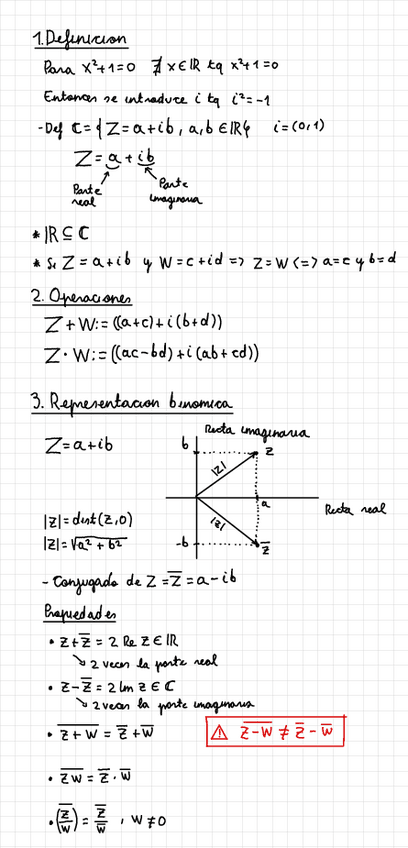 1. Definicion
Para x²+1=0 ∄ x∈ℝ tq x²+1=0
Entonces se introduce i tq i²=-1
-Def ℂ={Z=a+ib, a,b∈ℝ} i=(0,1)
Z=a+ib
Parte real Parte imaginaria
* ℝ⊆ℂ
* Si Z=a+ib y W=c+id => Z=W <=> a=c y b=d
2. Operaciones
Z+W:=((a+c)+i(b+d))
Z·W:=((ac-bd)+i(ab+cd))
3. Representacion binomica
Recta imaginaria
Z=a+ib
b z
|z|
a
Recta real
|z|
|z|=dist(z,0)
|z|=√a²+b²
-b z̅
- Conjugado de Z=Z̅=a-ib
Propiedades
• z+z̅=2 Re z∈ℝ
↘ 2 veces la parte real
• z-z̅=2 Im z∈ℂ
↘ 2 veces la parte imaginaria
• \overline{z+w}=z̅+w̅
⚠ \overline{z-w}≠z̅-w̅
• \overline{zw}=z̅·w̅
• \overline{(z/w)}=z̅/w̅, w≠0